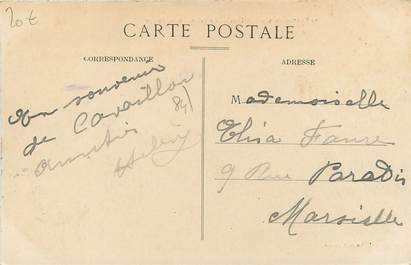 20 €
CARTE POSTALE
CORRESPONDANCE
ADRESSE
en souvenir
de Cavaillon
84)
amitiés
Mademoiselle
Elisa Faure
9 Rue Paradis
Marseille